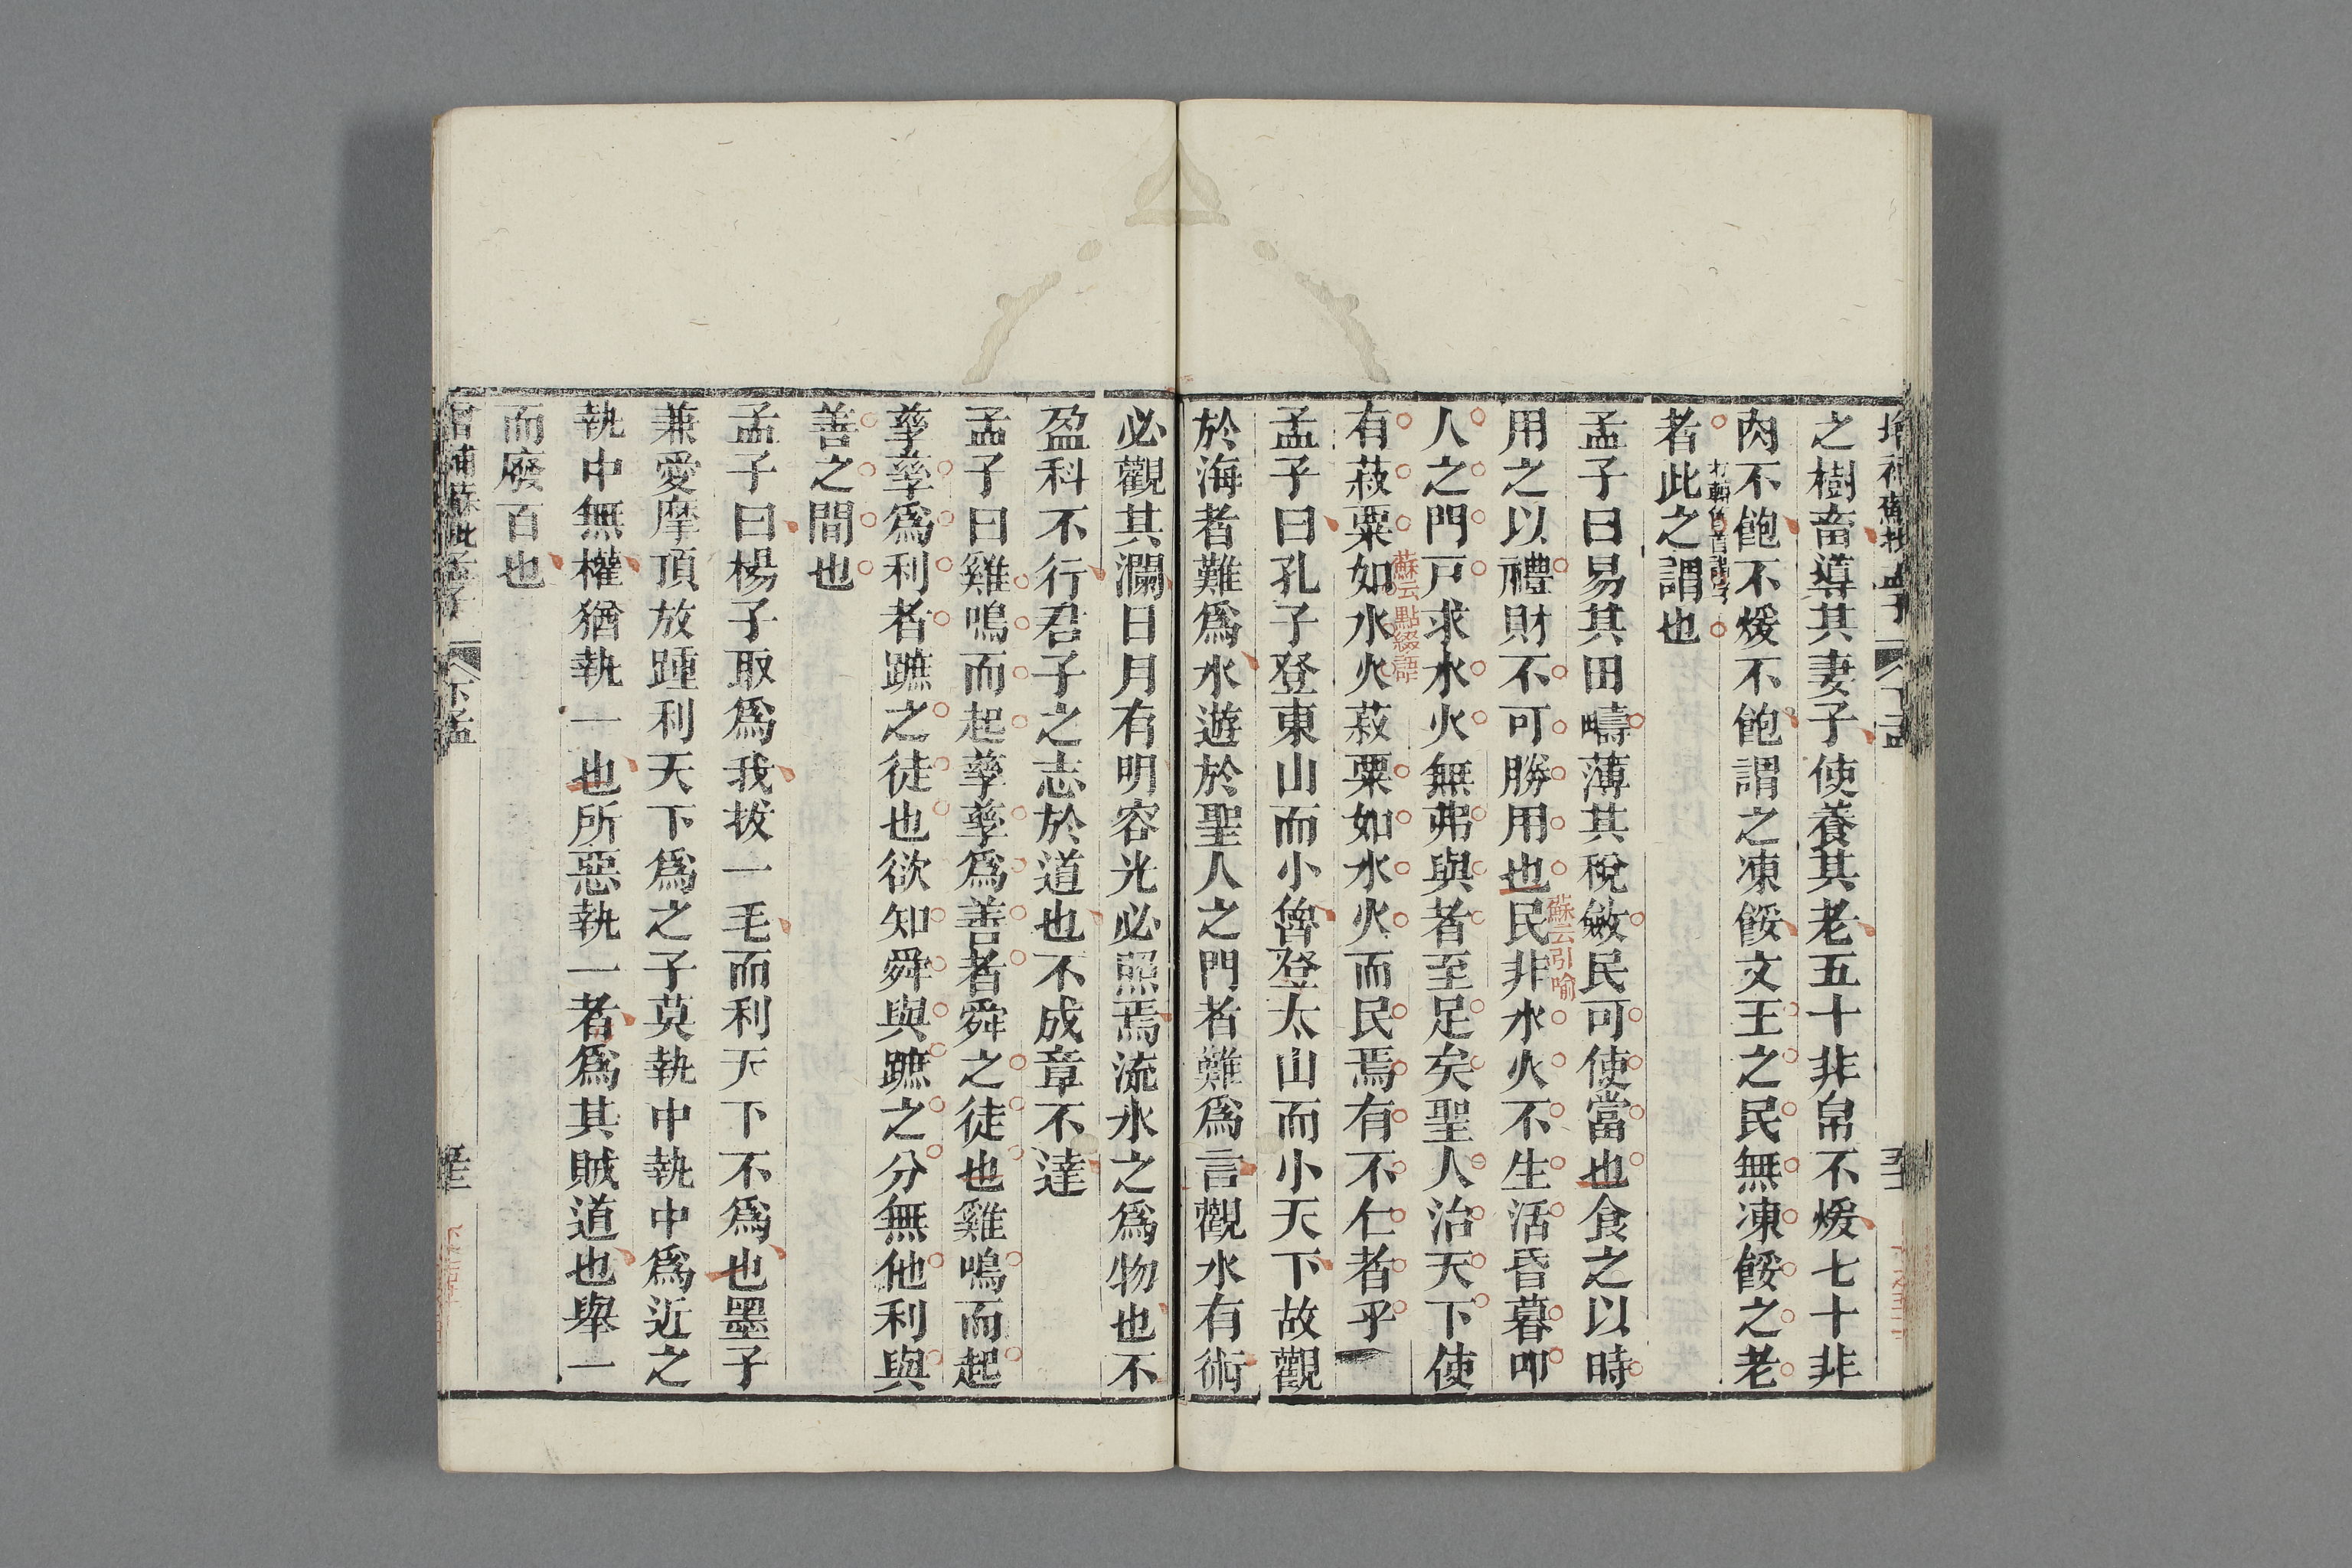 之樹畜導其妻子使養其老五十非帛不煖七十非
肉不飽不煖不飽謂之凍餒文王之民無凍餒之老
者此之謂也
孟子曰易其田疇薄其稅斂民可使富也食之以時
蘇云引喻
用之以禮財不可勝用也民非水火不生活昏暮叩
人之門戸求水火無弗與者至足矣聖人治天下使
蘇云點綴語
有菽粟如水火菽粟如水火而民焉有不仁者乎
孟子曰孔子登東山而小魯登太山而小天下故觀
於海者難爲水遊於聖人之門者難爲言觀水有術
必觀其瀾日月有明容光必照焉流水之爲物也不
盈科不行君子之志於道也不成章不達
孟子曰雞鳴而起孳孳爲善者舜之徒也雞鳴而起
孳孳爲利者蹠之徒也欲知舜與蹠之分無他利與
善之間也
孟子曰楊子取爲我拔一毛而利天下不爲也墨子
兼愛摩頂放踵利天下爲之子莫執中執中爲近之
執中無權猶執一也所惡執一者爲其賊道也舉一
而廢百也
下孟